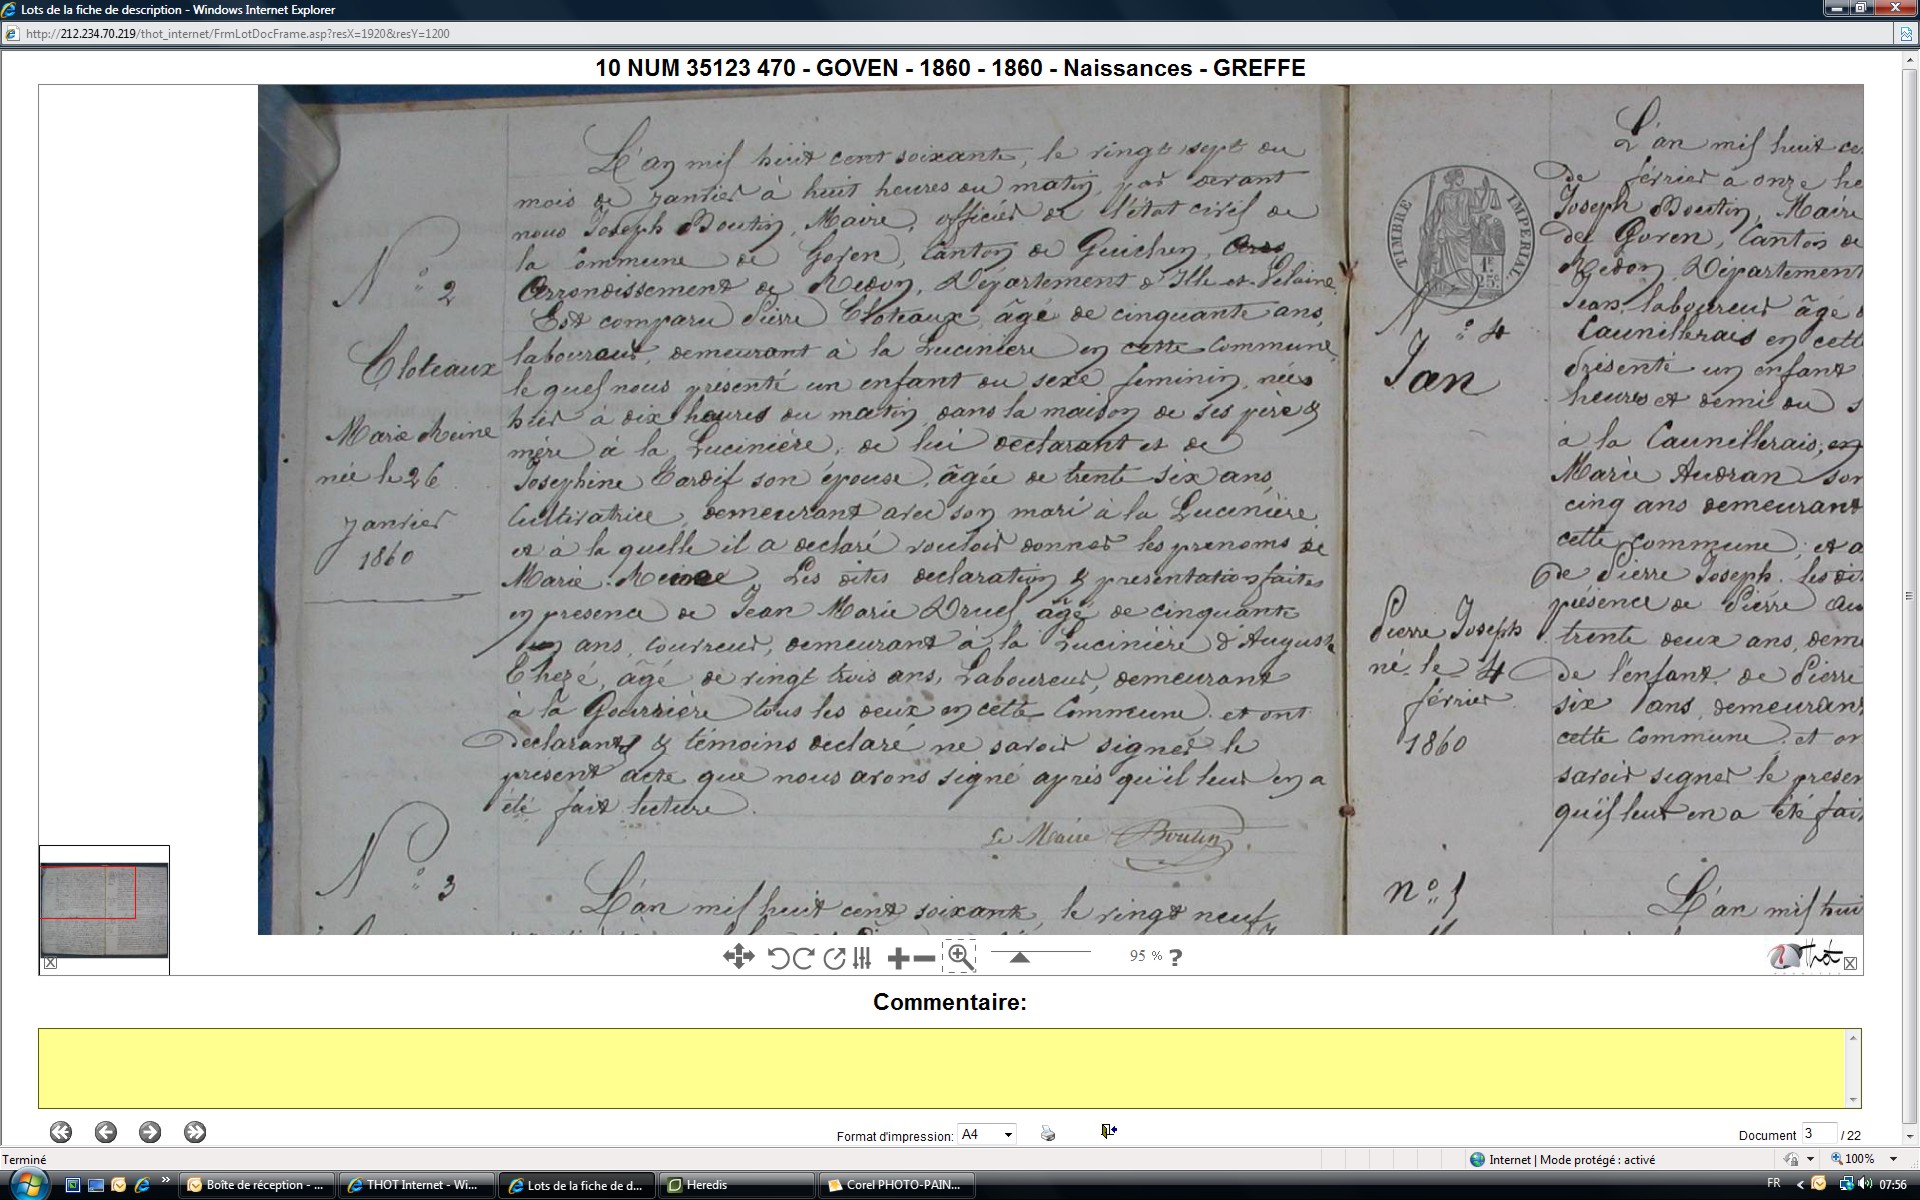 Lots de la fiche de description - Windows Internet Explorer
http://212.234.70.219/thot_internet/FrmLotDocFrame.asp?resX=1920&resY=1200
10 NUM 35123 470 - GOVEN - 1860 - 1860 - Naissances - GREFFE
N° 2
Cloteaux
Marie Reine
née le 26
janvier
1860
L'an mil huit cent soixante, le vingt sept du
mois de janvier à huit heures du matin, par devant
nous Joseph Boutin, Maire, officier de l'état civil de
la Commune de Goven, Canton de Guichen,
Arrondissement de Redon, Département d'Ille et Vilaine
Est comparu Pierre Cloteaux, âgé de cinquante ans,
laboureur, demeurant à la Lucinière en cette Commune,
le quel nous présenté un enfant du sexe feminin, née
hier à dix heures du matin, dans la maison de ses père &
mère à la Lucinière, de lui declarant et de
Josephine Tardif son épouse, âgée de trente six ans,
Cultivatrice, demeurant avec son mari à la Lucinière
et à la quelle il a declaré vouloir donner les prenoms de
Marie Reine, Les dites declaration & presentation faites
en presence de Jean Marie Druel, âgé de cinquante
ans, couvreur, demeurant à la Lucinière & d'August
Thezé, âgé de vingt trois ans, Laboureur, demeurant
à la Gourrière tous les deux en cette Commune. et ont
declarant & témoins declaré ne savoir signer le
présent acte que nous avons signé après qu'il leur en a
été fait lecture.
Le Maire Boutin
N° 3
L'an mil huit cent soixante, le vingt neuf
TIMBRE IMPERIAL
1F
25C
N° 4
Jan
Pierre Joseph
né le 4
février
1860
L'an mil huit ce
de février à onze he
Joseph Boutin, Maire
de Goven, Canton de
Redon, Département
Jean, laboureur âgé d
Caunillerais en cett
présenté un enfant
heures et demi du s
à la Caunillerais, en
Marie Audran son
cinq ans demeurant
cette commune; et a
de Pierre Joseph. les di
présence de Pierre Au
trente deux ans, deme
de l'enfant, de Pierre
six ans, demeurant
cette Commune. et on
savoir signer le presen
qu'il leur en a été fai
n° 5
L'an mil hui
95 % ?
Thot
Commentaire:
Format d'impression: A4
Document 3 / 22
Terminé
Internet | Mode protégé : activé
100%
Boîte de réception - ...
THOT Internet - Wi...
Lots de la fiche de d...
Heredis
Corel PHOTO-PAIN...
FR
07:56